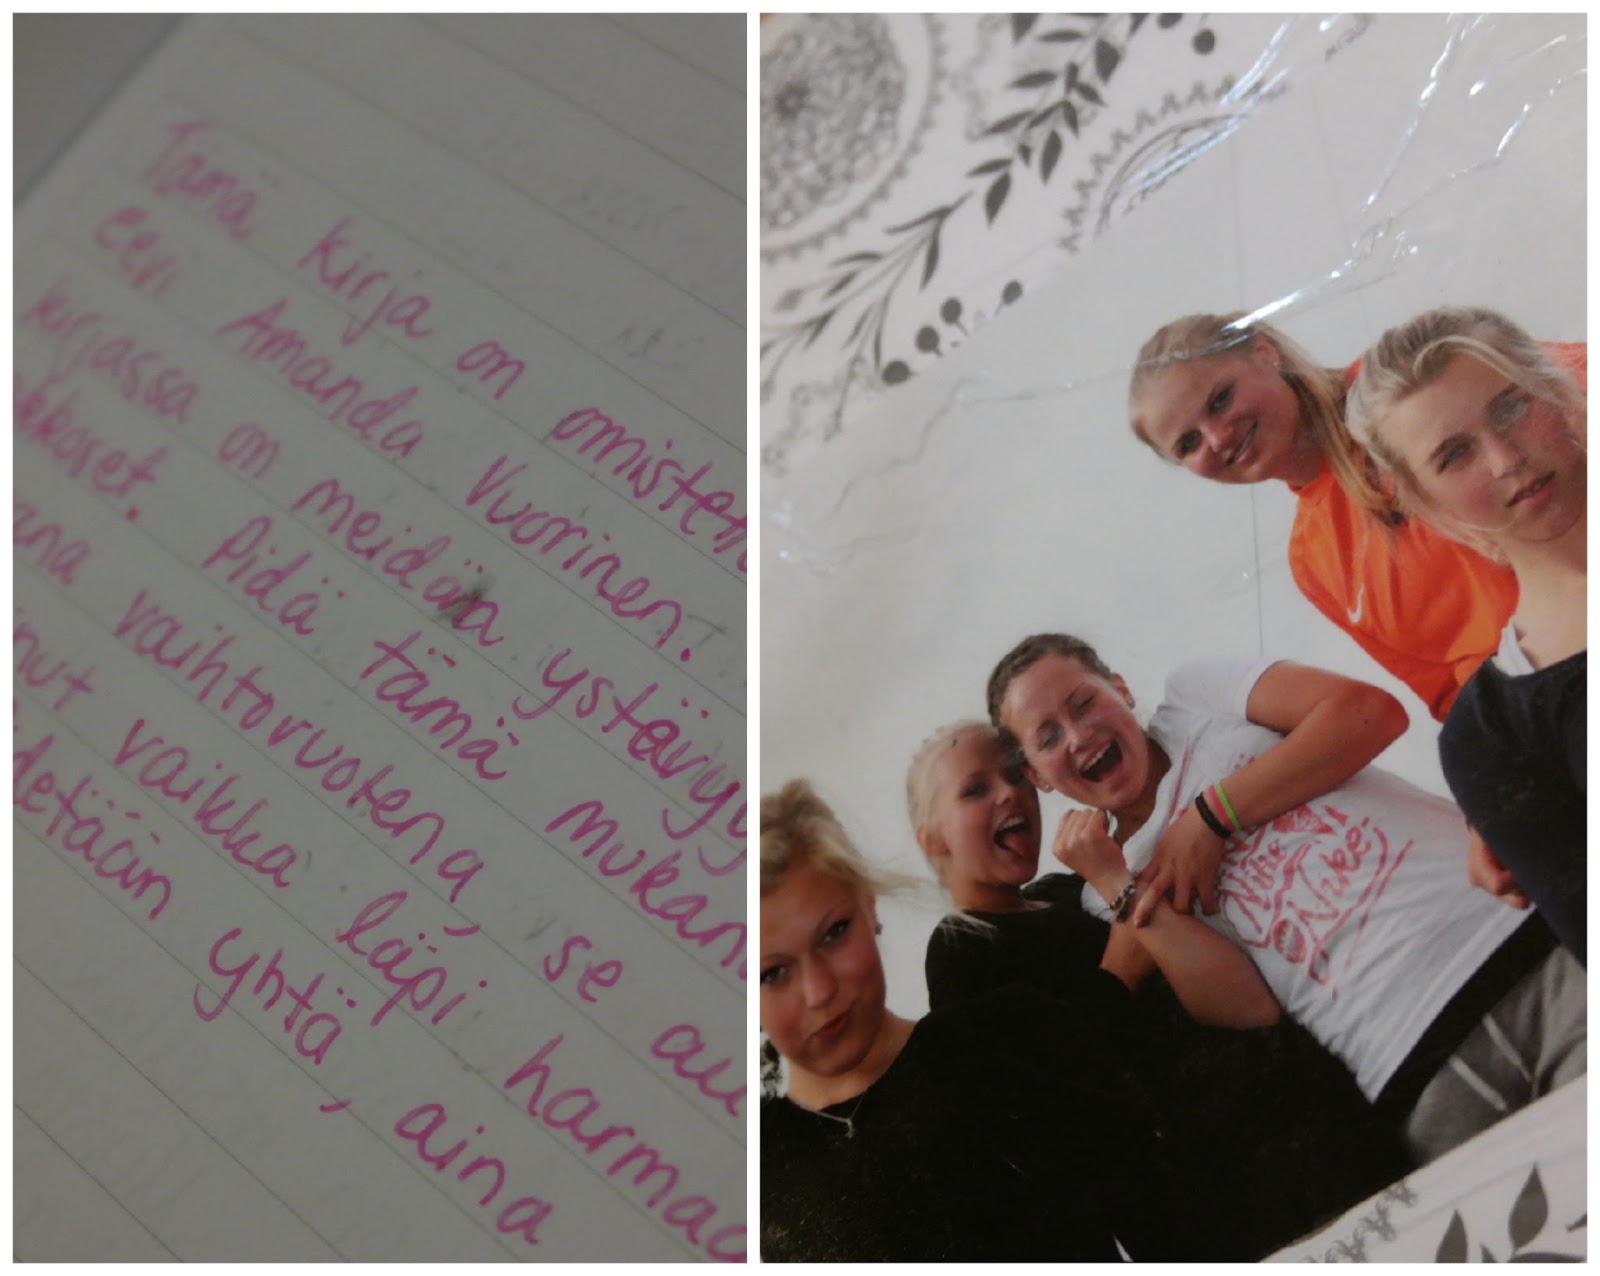 Tämä kirja on omistet
eevi Amanda Vuorinen.
kirjassa on meidän ystävyy
kkoset. Pidä tämä mukan
ana vaihtovuotena, se au
nut vaikka läpi harmaa
detään yhtä, aina